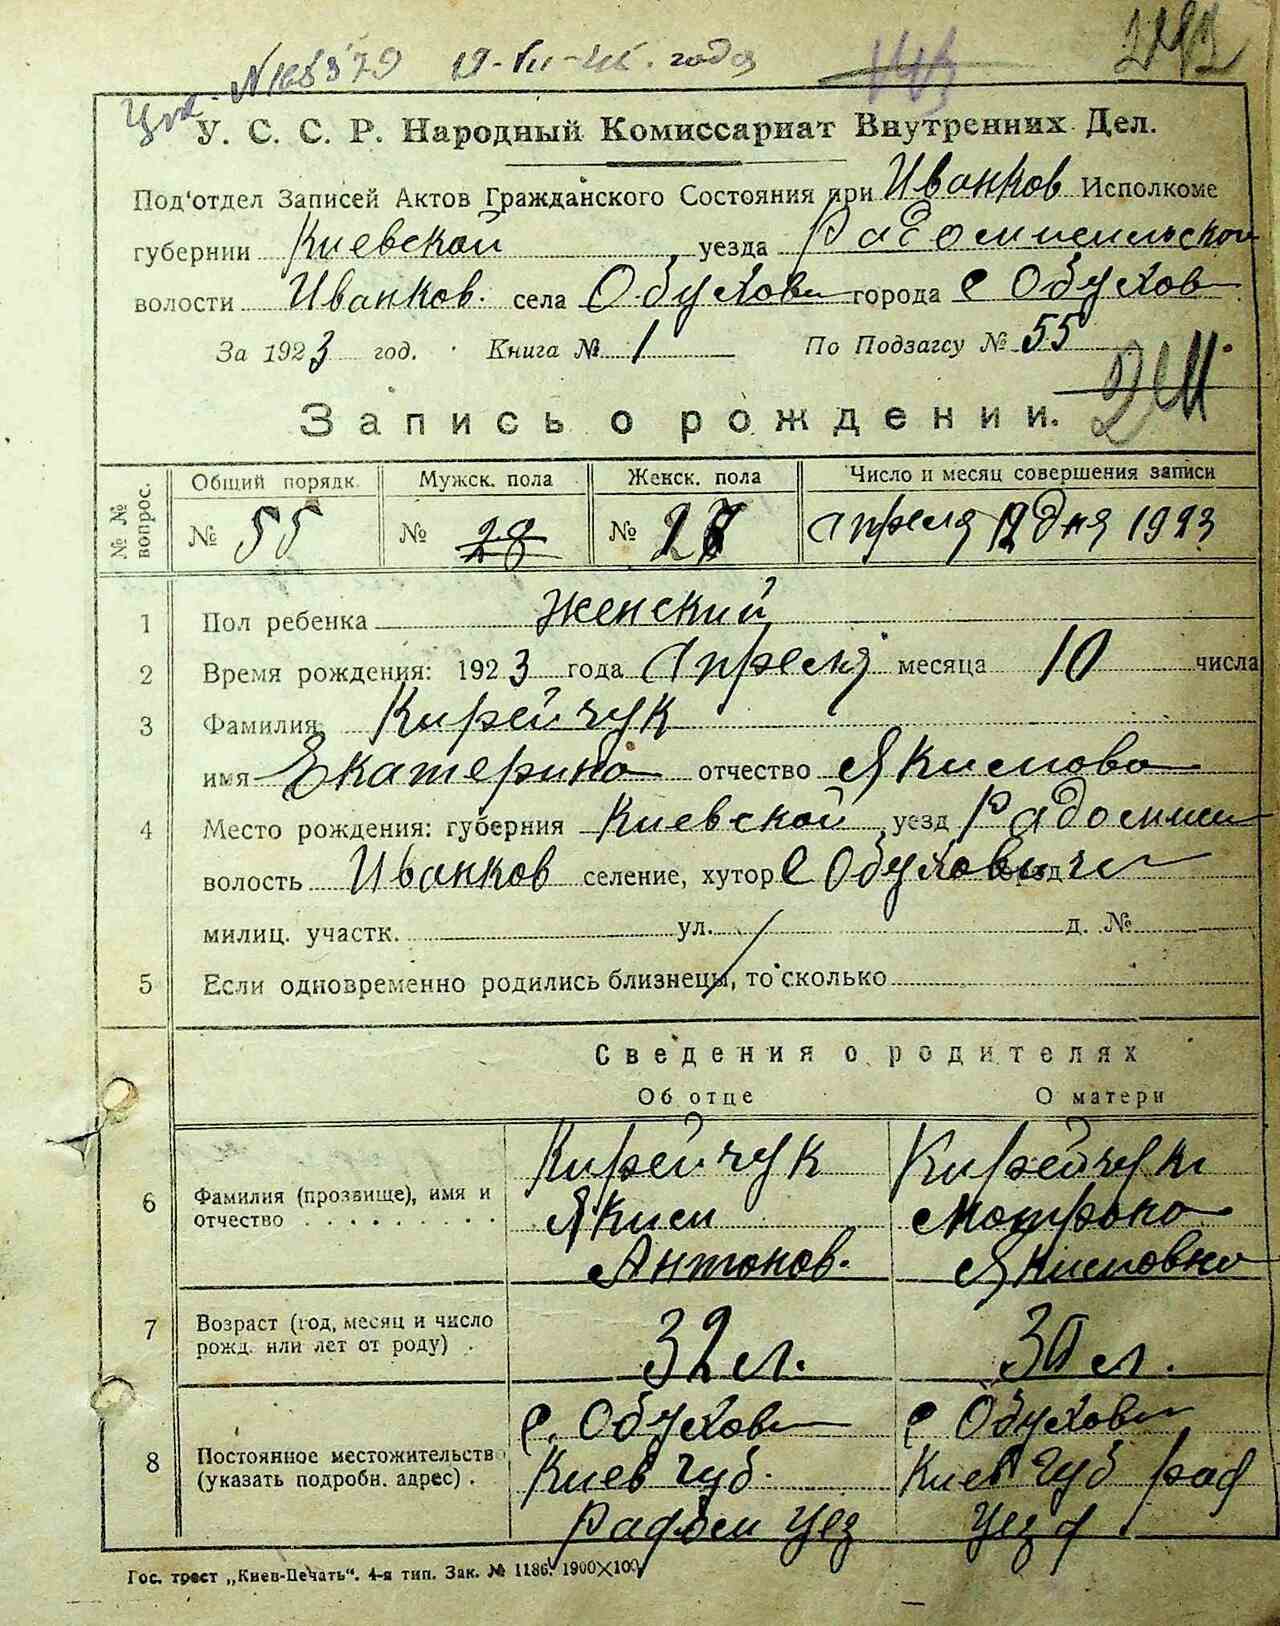 У. С. С. Р. Народный Комиссариат Внутренних Дел.
Под'отдел Записей Актов Гражданского Состояния при Иванков Исполкоме
губернии Киевской уезда Радомисильской
волости Иванков. села Обухови города с Обухов
За 1923 год. Книга № 1 По Подзагсу № 55
Запись о рождении.
№ № вопрос. Общий порядк. Мужск. пола Женск. пола Число и месяц совершения записи
№ 55 № 28 № 27 апреля 12 дня 1923
1 Пол ребенка Женский
2 Время рождения: 1923 года Апреля месяца 10 числа
3 Фамилия Кирейчук
имя Екатерина отчество Якимова
4 Место рождения: губерния Киевской уезд Радомис
волость Иванков селение, хутор с Обуховичи город
милиц. участк. ул. д. №
5 Если одновременно родились близнецы, то сколько
Сведения о родителях
Об отце О матери
6 Фамилия (прозвище), имя и отчество
Кирейчук Яким Антонов.
Кирейчук Мотрона Якимовна
7 Возраст (год, месяц и число рожд. или лет от роду)
32 л. 30 л.
8 Постоянное местожительство (указать подробн. адрес)
с. Обухови Киев губ. Радом уез
с Обухови Киев губ рад уезд.
Гос. трест „Киев-Печать“. 4-я тип. Зак. № 1186. 1900×100